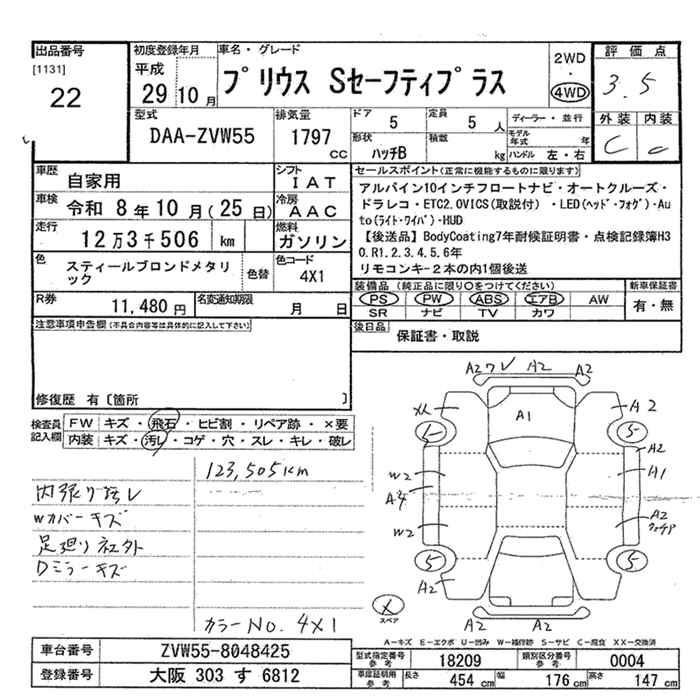 出品番号
[1131]
22
初度登録年月
平成
29 10 月
車名・グレード
プリウス Sセーフティプラス
2WD
・
4WD
評価点
3.5
外装 内装
C C
型式
DAA-ZVW55
排気量
1797
CC
ドア
5
定員
5 人
形状
ハッチB
積載
kg
ディーラー・並行
モデル年式 年
ハンドル 左・右
車歴
自家用
シフト
IAT
車検
令和 8 年 10 月 ( 25 日)
冷房
AAC
走行
12 万 3 千 506 km
燃料
ガソリン
色
スティールブロンドメタリック
色替
色コード
4X1
R券
11,480 円
名変通知期限
月 日
セールスポイント(正常に機能するものに限ります)
アルパイン10インチフロートナビ・オートクルーズ・
ドラレコ・ETC2.0VICS(取説付) ・LED(ヘッド・フォグ)・Au
to(ライト・ワイパ)・HUD
【後送品】BodyCoating7年耐候証明書・点検記録簿H3
0.R1.2.3.4.5.6年
リモコンキー2本の内1個後送
装備品 (純正品に限り○をつけてください)
PS PW ABS エアB AW
SR ナビ TV カワ
新車保証書
有・無
後日品
保証書・取説
注意事項申告欄(不具合内容等は具体的に記入して下さい)
修復歴 有〔箇所 〕
検査員記入欄
FW キズ・飛石・ヒビ割・リペア跡・×要
内装 キズ・汚レ・コゲ・穴・スレ・キレ・破レ
123,505km
内張り汚レ
Wカバーキズ
足廻りネコ外
Dミラーキズ
カラーNo. 4X1
A2 ワレ A2 A2
XX
A1
A2
5
5
A2
W2
A1
A4
W2
A2
5
5
A2
A2 A2
X
スペア
A-キズ E-エクボ U-凹み W-補修跡 S-サビ C-腐食 XX-交換済
車台番号
ZVW55-8048425
登録番号
大阪 303 す 6812
型式指定番号
参考
18209
類別区分番号
参考
0004
車庫証明用
参考
長さ 454 cm 幅 176 cm 高さ 147 cm